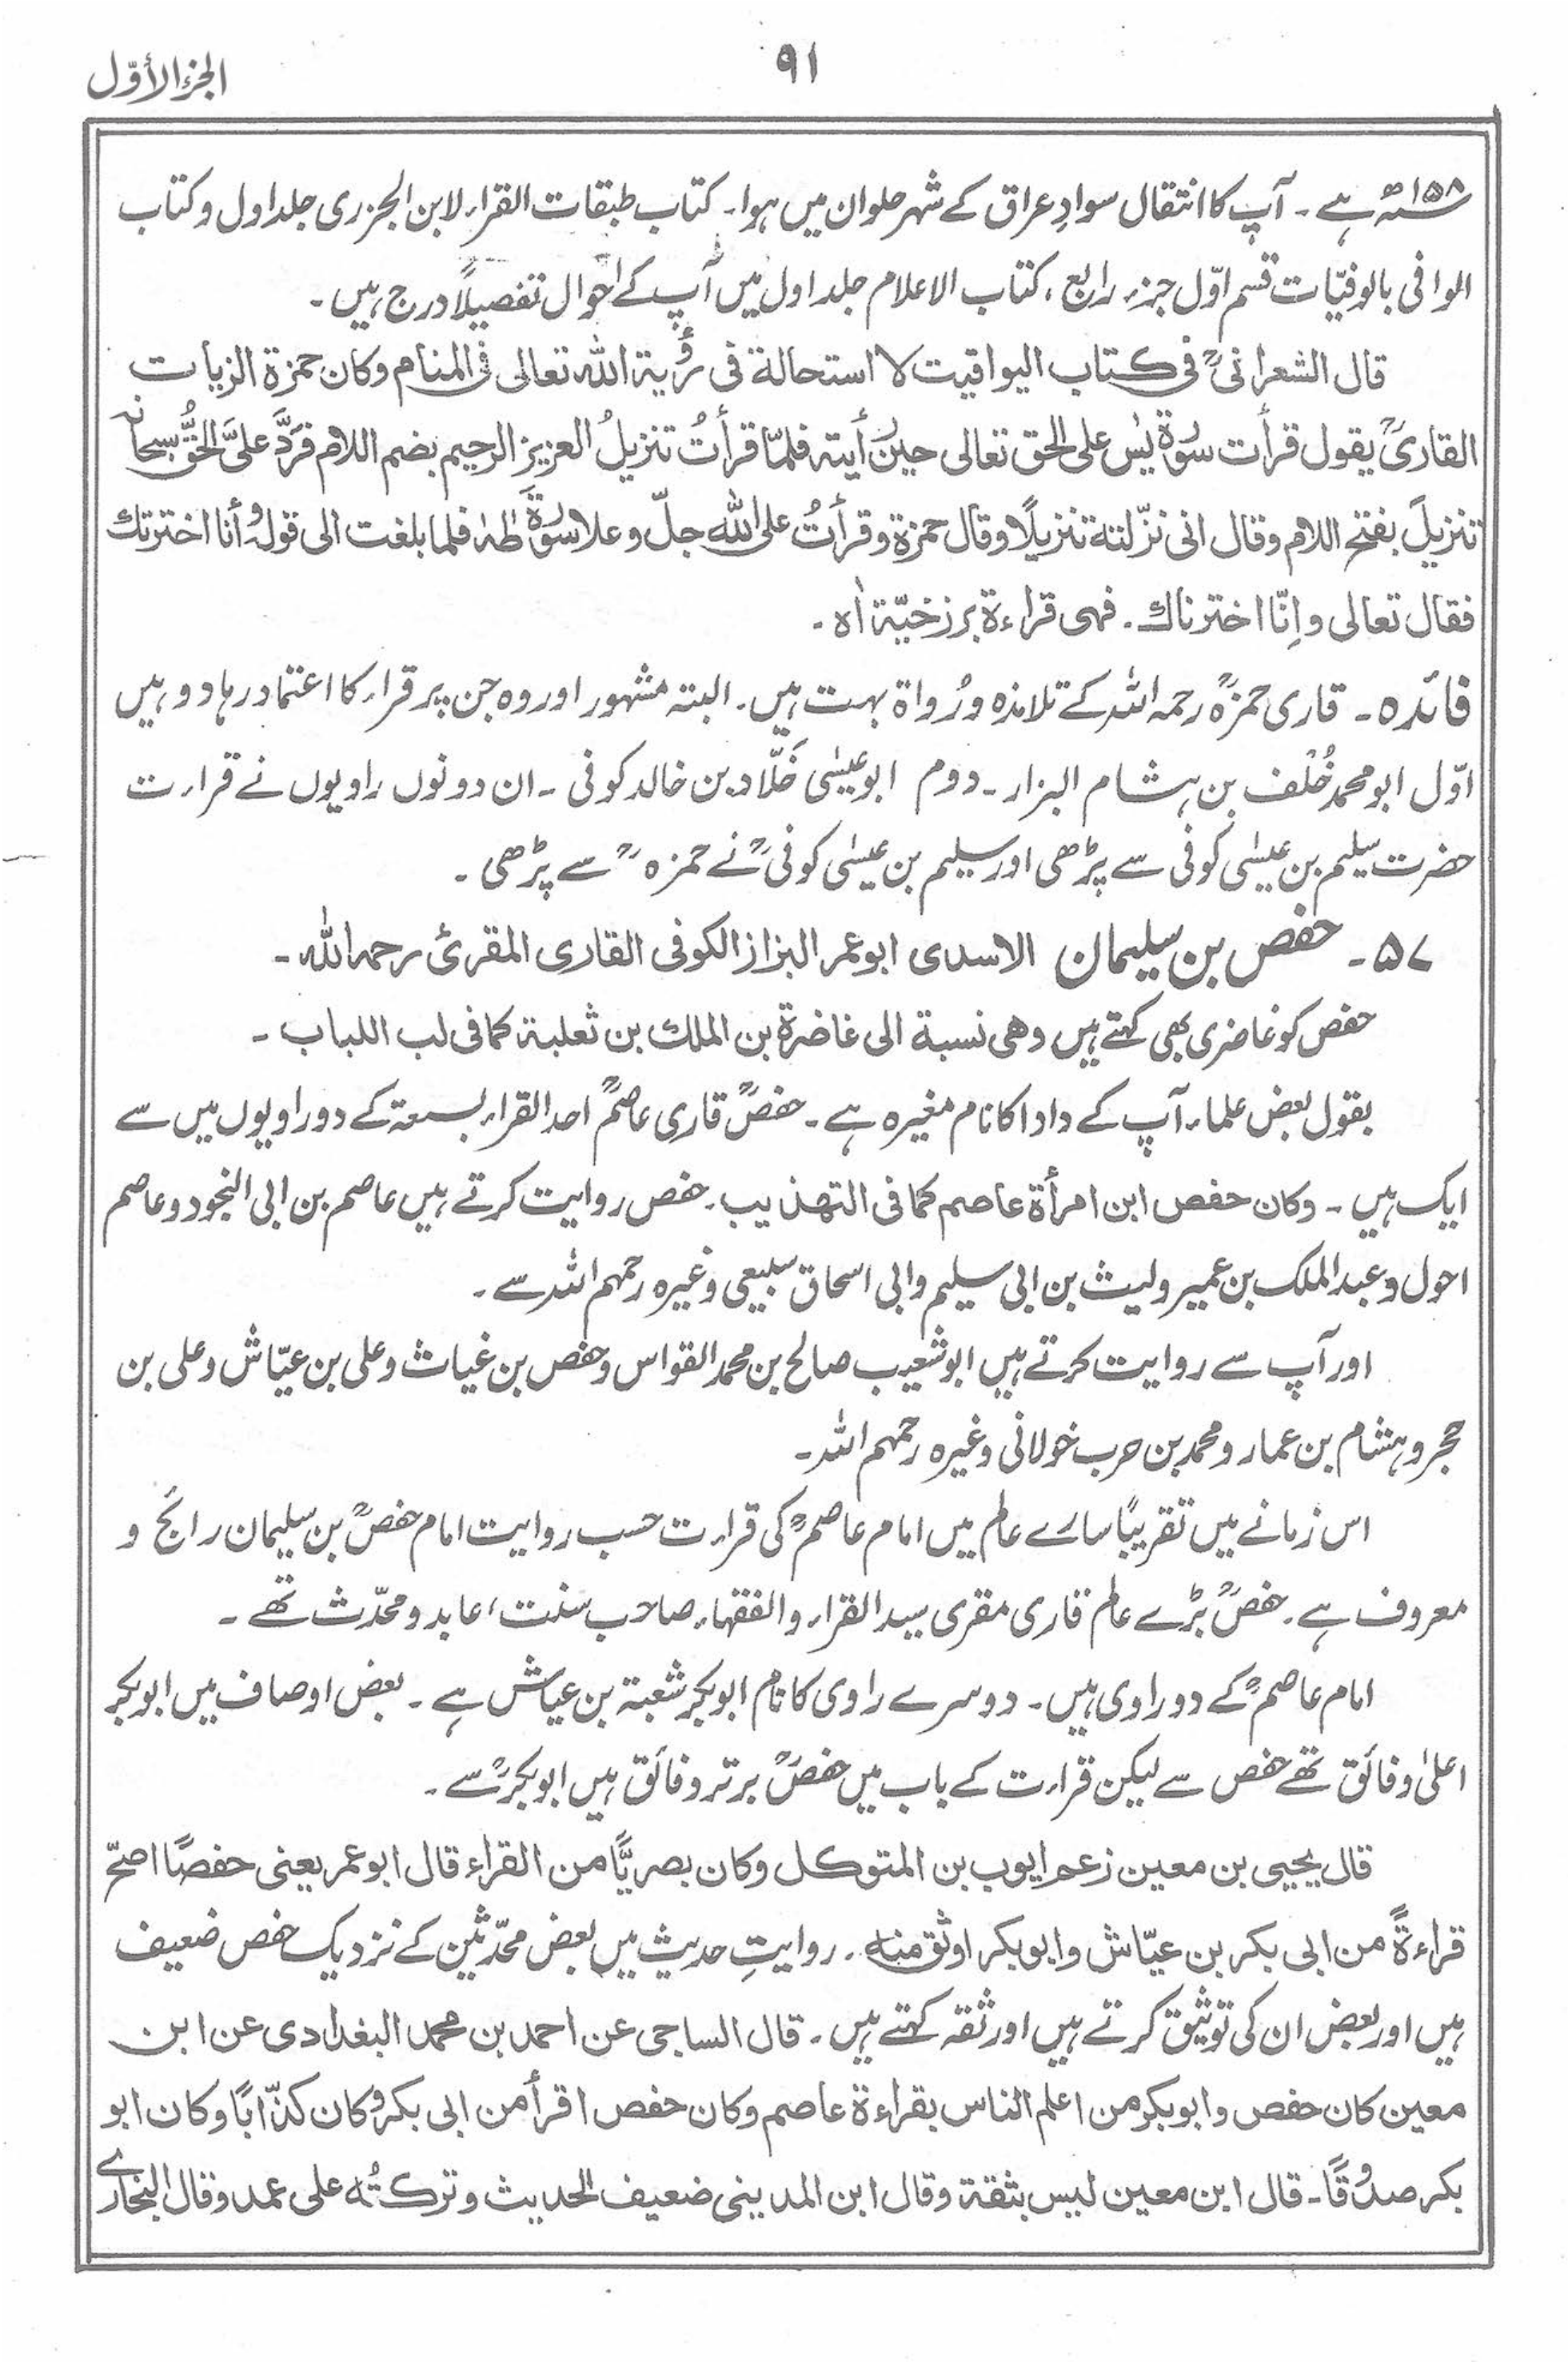 الجزء الأوّل
۹۱
۱۵۸ھ ہے۔ آپ کا انتقال سوادِ عراق کے شہر حلوان میں ہوا۔ کتاب طبقات القراء لابن الجزری جلد اول و کتاب
الوافی بالوفیّات قسم اوّل جزء رابع، کتاب الاعلام جلد اول میں آپ کے احوال تفصیلاً درج ہیں۔
قال الشعرانیؒ فی کتاب الیواقیت لا استحالة فی رؤیة الله تعالی فی المنام وکان حمزة الزیات
القاریؒ یقول قرأت سورة یٰس علی الحق تعالی حین رأیته فلمّا قرأتُ تنزیلُ العزیز الرحیم بضم اللام فرَدَّ علیَّ الحقُّ سبحانه
تنزیلَ بفتح اللام وقال انی نزّلته تنزیلًا وقال حمزة وقرأتُ علی الله جلّ وعلا سورةَ طٰهٰ فلما بلغت الی قوله وأنا اخترتك
فقال تعالی واِنّا اخترناك۔ فهی قراءة برزخیّة اٰه۔
فائدہ۔ قاری حمزہؒ رحمہ اللہ کے تلامذہ ورُواۃ بہت ہیں۔ البتہ مشہور اور وہ جن پر قراء کا اعتماد رہا دو ہیں
اوّل ابومحمد خُلْف بن ہشام البزار۔ دوم ابوعیسٰی خَلّاد بن خالد کوفی۔ ان دونوں راویوں نے قراءت
حضرت سلیم بن عیسٰی کوفی سے پڑھی اور سلیم بن عیسٰی کوفیؒ نے حمزہؒ سے پڑھی۔
۵۷۔ حفص بن سلیمان الاسدی ابوعمر البزاز الکوفی القاری المقرئ رحمہ اللہ۔
حفص کو غاضری بھی کہتے ہیں وھی نسبة الی غاضرة بن الملك بن ثعلبة کما فی لب اللباب۔
بقول بعض علماء آپ کے دادا کا نام مغیرہ ہے۔ حفصؒ قاری عاصمؒ احد القراء السبعۃ کے دو راویوں میں سے
ایک ہیں۔ وکان حفص ابن امرأة عاصم کما فی التهذیب۔ حفص روایت کرتے ہیں عاصم بن ابی النجود و عاصم
احول و عبدالملک بن عمیر ولیث بن ابی سلیم وابی اسحاق سبیعی وغیرہ رحمہم اللہ سے۔
اور آپ سے روایت کرتے ہیں ابوشعیب صالح بن محمد القواس وحفص بن غیاث وعلی بن عیّاش وعلی بن
حجر وہشام بن عمار ومحمد بن حرب خولانی وغیرہ رحمہم اللہ۔
اس زمانے میں تقریباً سارے عالم میں امام عاصمؒ کی قراءت حسب روایت امام حفصؒ بن سلیمان رائج و
معروف ہے۔ حفصؒ بڑے عالم قاری مقری سید القراء والفقہاء صاحب سنت، عابد ومحدّث تھے۔
امام عاصمؒ کے دو راوی ہیں۔ دوسرے راوی کا نام ابوبکر شعبۃ بن عیاش ہے۔ بعض اوصاف میں ابوبکر
اعلٰی وفائق تھے حفص سے لیکن قراءت کے باب میں حفصؒ برتر وفائق ہیں ابوبکرؒ سے۔
قال یحیی بن معین زعم ایوب بن المتوکل وکان بصریًّا من القراء قال ابوعمر یعنی حفصًا اصحّ
قراءةً من ابی بکر بن عیّاش وابوبکر اوثق منه۔ روایتِ حدیث میں بعض محدّثین کے نزدیک حفص ضعیف
ہیں اور بعض ان کی توثیق کرتے ہیں اور ثقہ کہتے ہیں۔ قال الساجی عن احمد بن محمد البغدادی عن ابن
معین کان حفص وابوبکر من اعلم الناس بقراءة عاصم وکان حفص اقرأ من ابی بکر وکان کذّابًا وکان ابو
بکر صدوقًا۔ قال ابن معین لیس بثقة وقال ابن المدینی ضعیف الحدیث وترکتُه علی عمد وقال البخاری